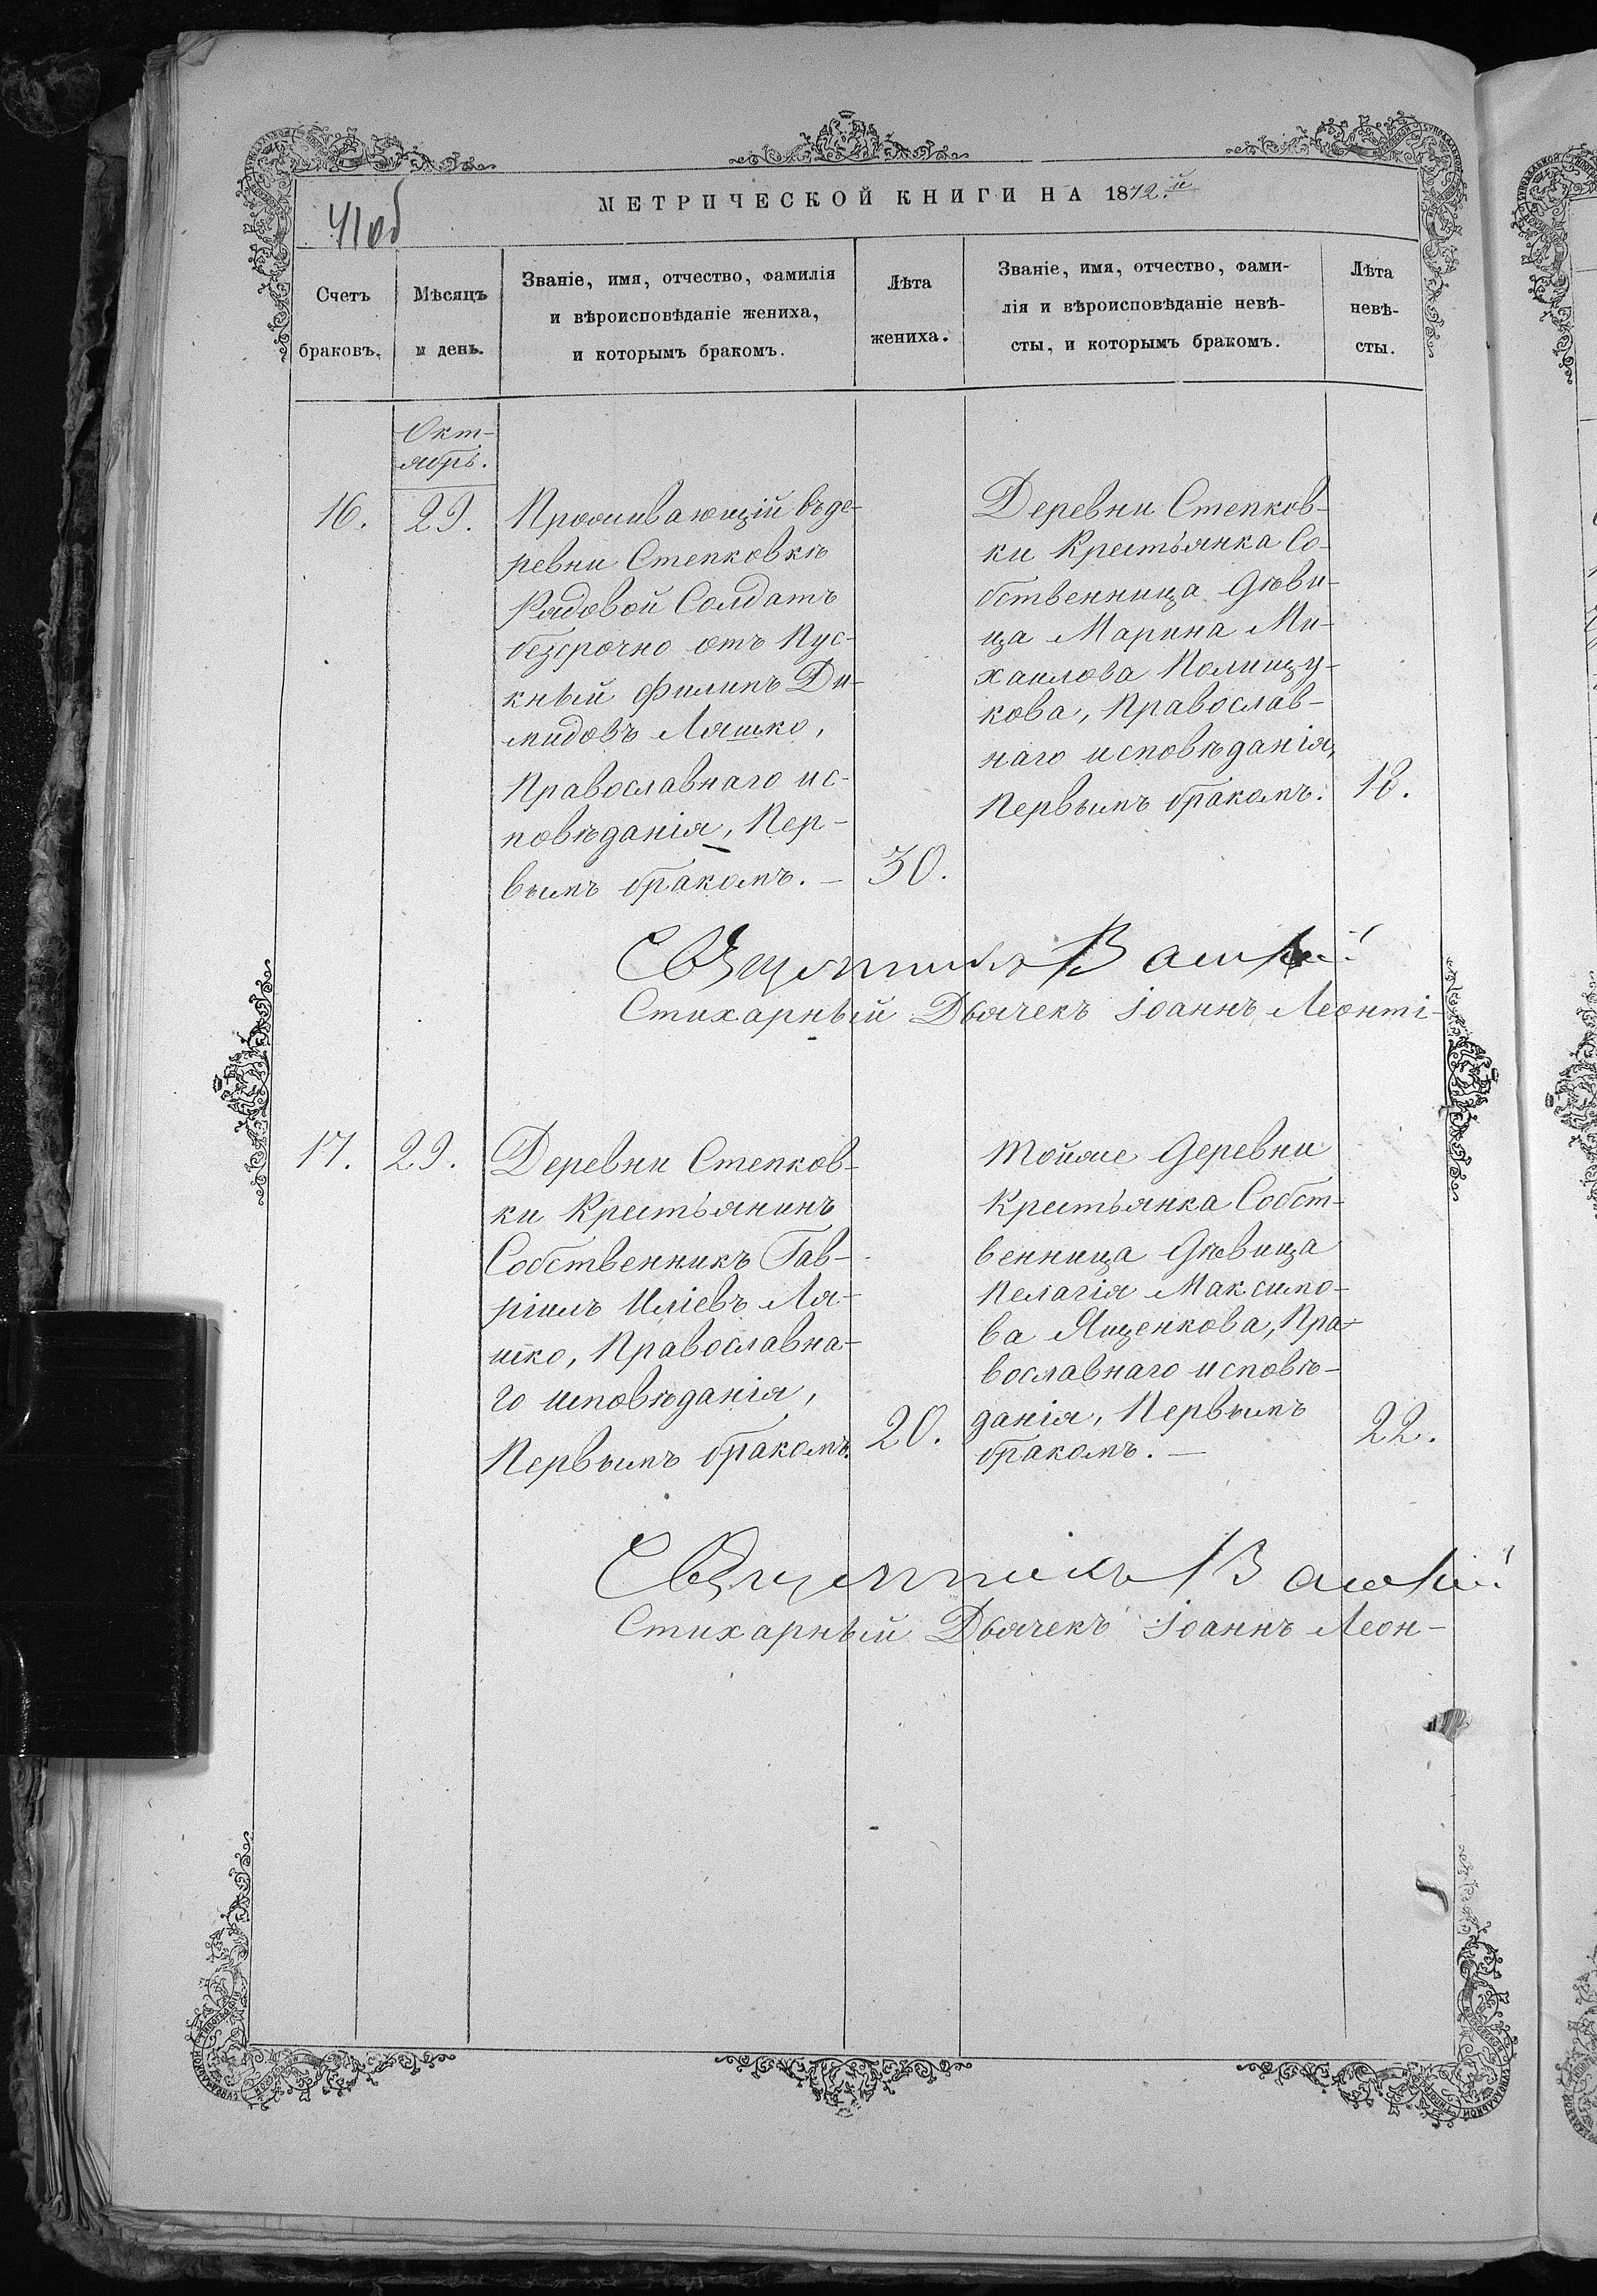 МЕТРИЧЕСКОЙ КНИГИ НА 1872.й
41об
Счетъ
браковъ.
Мѣсяцъ
и день.
Званіе, имя, отчество, фамилія
и вѣроисповѣданіе жениха,
и которымъ бракомъ.
Лѣта
жениха.
Званіе, имя, отчество, фами-
лія и вѣроисповѣданіе невѣ-
сты, и которымъ бракомъ.
Лѣта
невѣ-
сты.
Окт-
ябрь.
16.
29.
Проживающій въ де-
ревни Степковкѣ
Рядовой Солдатъ
безсрочно отъ Пус-
кный Филипъ Ди-
мидовъ Ляшко,
Православнаго ис-
повѣданія, Пер-
вымъ бракомъ. –
30.
Деревни Степков-
ки Крестьянка Со-
бственница дѣви-
ца Марина Ми-
хаилова Полищу-
кова, Православ-
наго исповѣданія,
Первымъ бракомъ.
18.
Священникъ
Стихарный Дьячекъ Іоаннъ Леонті-
17.
29.
Деревни Степков-
ки Крестьянинъ
Собственникъ Гав-
ріилъ Иліевъ Ля-
шко, Православна-
го исповѣданія,
Первымъ бракомъ.
20.
Тойже деревни
Крестьянка Собст-
венница дѣвица
Пелагія Максимо-
ва Ященкова, Пра-
вославнаго исповѣ-
данія, Первымъ
бракомъ. –
22.
Священникъ
Стихарный Дьячекъ Іоаннъ Леон-